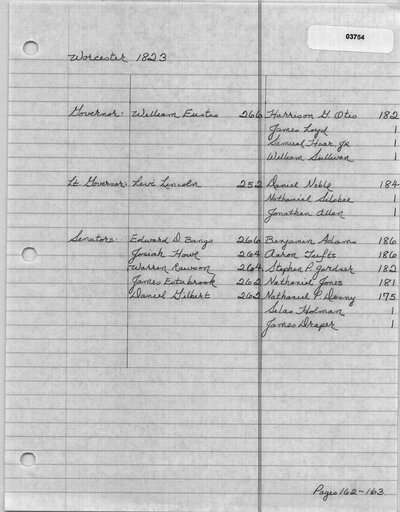 03754
Worcester 1823
Governor: William Eustis 266 Harrison G. Otis 182
James Loyd 1
Samuel Hoar, Jr 1
William Sullivan 1
Lt. Governor: Levi Lincoln 252 Daniel Noble 184
Nathaniel Silsbee 1
Jonathan Allen 1
Senators: Edward D. Bangs 266 Benjamin Adams 186
Josiah Howe 264 Aaron Tufts 186
Warren Rawson 264 Stephen P. Gardner 182
James Estabrook 262 Nathaniel Jones 181
Daniel Gilbert 262 Nathaniel P. Denny 175
Silas Holman 1
James Draper 1
Pages 162-163